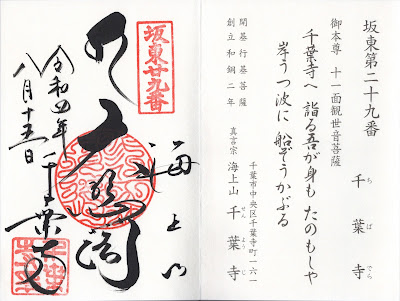 坂東第二十九番
千葉寺
ちばでら
御本尊 十一面観世音菩薩
千葉寺へ 詣る吾が身も たのもしや
岸うつ波に 船ぞうかぶる
開基行基菩薩
創立和銅二年
千葉市中央区千葉寺町一六一
真言宗 海上山 千葉寺
せんようじ
坂東廿九番
海上山
千葉寺
令和四年
八月十五日